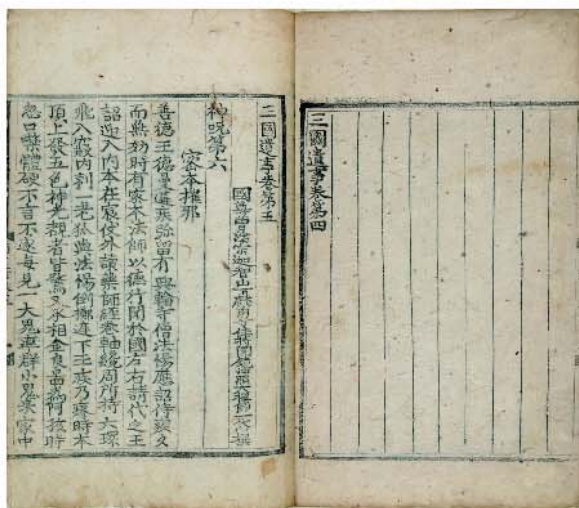 三國遺事卷第四
三國遺事卷第五
國尊曹溪宗迦智山下麟角寺住持圓鏡冲照大禪師一然撰
神呪第六
密本摧邪
善德王德曼遘疾彌留有興輪寺僧法惕應詔侍疾久
而無効時有密本法師以德行聞於國左右請代之王
詔迎入內本在宸仗外讀藥師經卷軸纔周所持六環
飛入寢內刺一老狐與法惕倒擲庭下王疾乃瘳時本
頂上發五色神光覩者皆驚又承相金良圖爲阿孩時
忽口噤體硬不言不遂每見一大鬼率群小鬼來家中